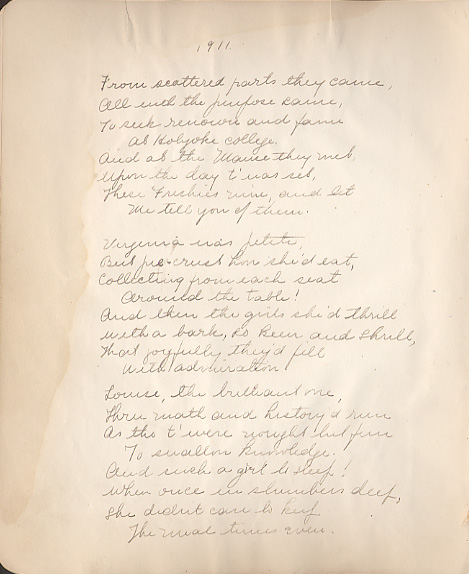 1911.
From scattered parts they came,
All with the purpose same,
To seek renown and fame
at Holyoke college.
And at the Manse they met
Upon the day t'was set,
These Freshies nine, and let
Me tell you of them.
Virginia was petite,
But pie-crust how she'd eat,
Collecting from each seat
Around the table!
And then the girls she'd thrill
with a bark, so keen and shrill,
That joyfully they'd fill
With admiration!
Louise, the brilliant one,
Thru math and history'd run
As tho t'were nought but fun
To swallow knowledge.
And such a girl to sleep!
When once in slumbers deep,
She didn't care to keep
The meal times even.